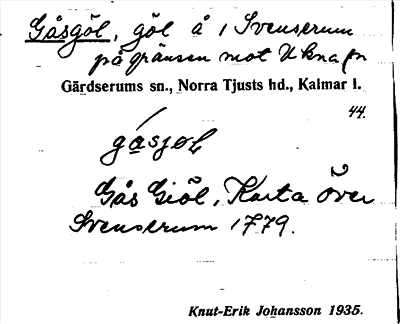 Gåsgöl, göl å / Svenserum
på gränsen mot Ukna sn
Gärdserums sn., Norra Tjusts hd., Kalmar l.
44.
gásjøl
Gås Giöl, Karta Över
Svenserum 1779.
Knut-Erik Johansson 1935.